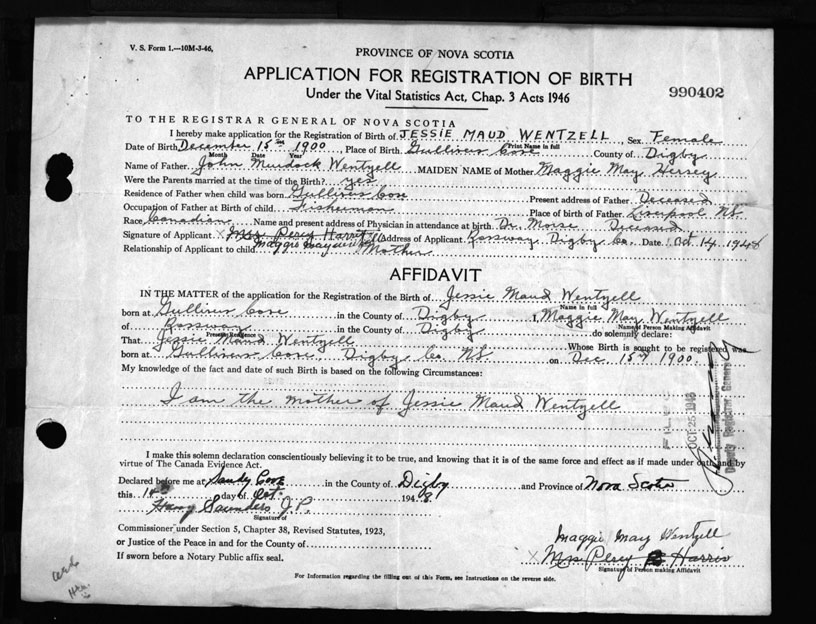 V. S. Form 1.—10M-3-46.
PROVINCE OF NOVA SCOTIA
APPLICATION FOR REGISTRATION OF BIRTH
Under the Vital Statistics Act, Chap. 3 Acts 1946
990402
TO THE REGISTRAR GENERAL OF NOVA SCOTIA
I hereby make application for the Registration of Birth of JESSIE MAUD WENTZELL, Sex Female
Print Name in full
Date of Birth December 15th 1900 Place of Birth Gullivers Cove County of Digby
Month Date Year
Name of Father John Murdock Wentzell MAIDEN NAME of Mother Maggie May Hersey
Were the Parents married at the time of the Birth? yes
Residence of Father when child was born Gullivers Cove Present address of Father Deceased
Occupation of Father at Birth of child Fisherman Place of birth of Father Liverpool NS.
Race Canadian Name and present address of Physician in attendance at birth Dr. Morse Deceased
Signature of Applicant x Mrs. Percy Harris Address of Applicant Rossway, Digby Co. Date Oct 14 1948
Maggie May
Relationship of Applicant to child Mother
AFFIDAVIT
IN THE MATTER of the application for the Registration of the Birth of Jessie Maud Wentzell
Name in full
born at Gullivers Cove in the County of Digby I, Maggie May Wentzell
Name of Person Making Affidavit
of Rossway in the County of Digby do solemnly declare:
Present Residence
That Jessie Maud Wentzell Whose Birth is sought to be registered was
born at Gullivers Cove, Digby Co. NS. on Dec. 15th 1900.
My knowledge of the fact and date of such Birth is based on the following Circumstances:
I am the mother of Jessie Maud Wentzell
OCT 25 1948
Deputy Registrar General
I make this solemn declaration conscientiously believing it to be true, and knowing that it is of the same force and effect as if made under oath and by
virtue of The Canada Evidence Act.
Declared before me at Sandy Cove in the County of Digby and Province of Nova Scotia
this 14 day of Oct. 1948
Harry Saunders J.P.
Signature of
Commissioner under Section 5, Chapter 38, Revised Statutes, 1923,
or Justice of the Peace in and for the County of
If sworn before a Notary Public affix seal.
Maggie May Wentzell
x Mrs Percy Harris
Signature of Person making Affidavit
For Information regarding the filling out of this Form, see Instructions on the reverse side.